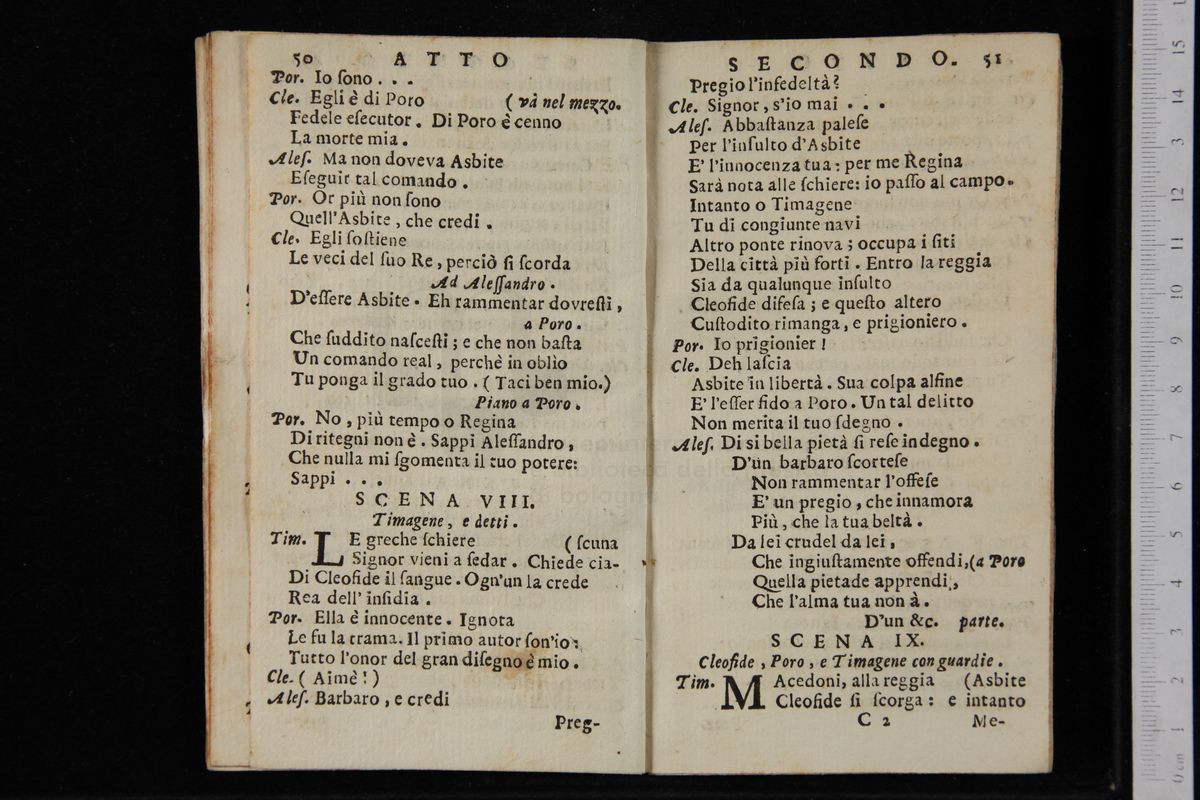 50 ATTO
Por. Io ſono . . .
Cle. Egli è di Poro ( và nel mezzo.
Fedele eſecutor . Di Poro è cenno
La morte mia .
Aleſ. Ma non doveva Asbite
Eſeguir tal comando .
Por. Or più non ſono
Quell'Asbite , che credi .
Cle. Egli ſoſtiene
Le veci del ſuo Re , perciò ſi ſcorda
Ad Aleſſandro .
D'eſſere Asbite . Eh rammentar dovreſti ,
a Poro .
Che ſuddito naſceſti ; e che non baſta
Un comando real , perchè in oblìo
Tu ponga il grado tuo . ( Taci ben mio.)
Piano a Poro .
Por. No , più tempo o Regina
Di ritegni non è . Sappi Aleſſandro ,
Che nulla mi ſgomenta il tuo potere:
Sappi . . .
SCENA VIII.
Timagene , e detti .
Tim. LE greche ſchiere ( ſcuna
Signor vieni a ſedar . Chiede cia-
Di Cleofide il ſangue . Ogn'un la crede
Rea dell' inſidia .
Por. Ella è innocente . Ignota
Le fu la trama. Il primo autor ſon'io :
Tutto l'onor del gran diſegno è mio .
Cle. ( Aimè ! )
Aleſ. Barbaro , e credi
Preg-
SECONDO. 51
Pregio l'infedeltà?
Cle. Signor , s'io mai . . .
Aleſ. Abbaſtanza paleſe
Per l'inſulto d'Asbite
E' l'innocenza tua : per me Regina
Sarà nota alle ſchiere: io paſſo al campo.
Intanto o Timagene
Tu di congiunte navi
Altro ponte rinova ; occupa i ſiti
Della città più forti . Entro la reggia
Sia da qualunque inſulto
Cleofide difeſa ; e queſto altero
Cuſtodito rimanga , e prigioniero .
Por. Io prigionier !
Cle. Deh laſcia
Asbite in libertà . Sua colpa alfine
E' l'eſſer fido a Poro . Un tal delitto
Non merita il tuo ſdegno .
Aleſ. Di si bella pietà ſi reſe indegno .
D'un barbaro ſcorteſe
Non rammentar l'offeſe
E' un pregio , che innamora
Più , che la tua beltà .
Da lei crudel da lei ,
Che ingiuſtamente offendi,(a Poro
Quella pietade apprendi ,
Che l'alma tua non à .
D'un &c. parte.
SCENA IX.
Cleofide , Poro , e Timagene con guardie .
Tim. MAcedoni, alla reggia (Asbite
Cleofide ſi ſcorga : e intanto
C 2 Me-